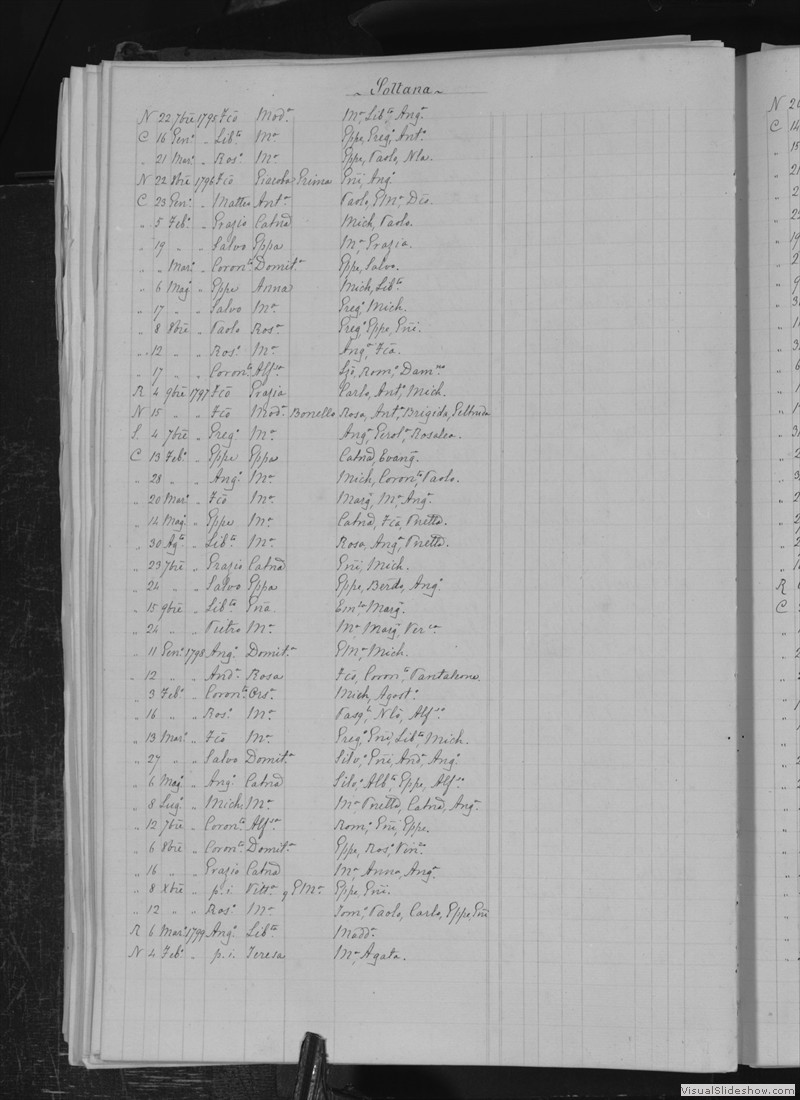 Sottana
N 22 7bre 1795 Fcō Modᵃ Mᵃ, Libᵗᵃ, Angᵃ
C 16 Genº „ Libᵗº Mᵃ Eppe, Gregº, Antº
„ 21 Marº „ Rosº Mᵃ Eppe, Paolo, Nla.
N 22 8bre 1796 Fcō Giacoba Prima Eñi, Angº
C 23 Genº „ Matteo Antᵃ Paolo, GMᵃ, Dco.
„ 5 Febº „ Grazio Catnā Mich, Paolo.
„ 19 „ „ Salvo Eppa Mᵃ, Grazia.
„ „ Marº „ Coronᵗº Domitᵃ Eppe, Salvo.
„ 6 Magº „ Eppe Anna Mich, Libᵗº
„ 17 „ „ Salvo Mᵃ Gregº Mich.
„ 8 8bre „ Paolo Rosᵃ Gregº, Eppe, Eñi.
„ 12 „ „ Rosº Mᵃ Angº, Fca.
„ 17 „ „ Coronᵗº Alfsᵃ Romº, Damⁿº
R 4 9bre 1797 Fcō Grazia Carlo, Antº, Mich.
N 15 „ „ Fcō Modᵃ Bonello Rosa, Antᵃ, Brigida, Geltruda
S. 4 7bre „ Gregº Mᵃ Angᵃ, Girolᵃ, Rosalea.
C 13 Febº „ Eppe Eppa Catnā, Evangᵃ.
„ 28 „ „ Angº Mᵃ Mich, Coronᵗº, Paolo.
„ 20 Marº „ Fcō Mᵃ Margᵃ, Mᵃ, Angᵃ
„ 14 Magº „ Eppe Mᵃ Catnā, Fcā, Pnetta.
„ 30 Agᵗº „ Libᵗº Mᵃ Rosa, Angᵃ, Pnetta.
„ 23 7bre „ Grazio Catnā Eñi, Mich.
„ 24 „ „ Salvo Eppa Eppe, Berdo, Angº
„ 15 9bre „ Libᵗº Eña Emˡᵃ, Margᵃ.
„ 24 „ „ Pietro Mᵃ Mᵃ Margᵃ, Verᶜᵃ
„ 11 Genº 1798 Angº Domitᵃ GMᵃ, Mich.
„ 12 „ „ Andᵃ Rosa Fcō, Coronᵗº, Pantaleone.
„ 3 Febº „ Coronᵗº Orsᵃ Mich, Agostº
„ 16 „ „ Rosº Mᵃ Pasqˡᵉ, Nlō, Alfˢº
„ 13 Marº „ Fcō Mᵃ Gregº, Eñi, Libᵗº, Mich.
„ 27 „ „ Salvo Domitᵃ Silvº, Eñi, Andᵃ, Angº
„ 6 Magº „ Angº Catnā Silvº, Albᵗº, Eppe, Alfˢº
„ 8 Lugº „ Mich Mᵃ Mᵃ Pnetta, Catnā, Angᵃ
„ 12 7bre „ Coronᵗº Alfˢᵃ Romº, Eñi, Eppe.
„ 6 8bre „ Coronᵗº Domitᵃ Eppe, Rosº, Vinᶻº
„ 16 „ „ Grazio Catnā Mᵃ, Anna, Angᵃ
„ 8 Xbre „ p. i. Vittᵃ q GMᵃ Eppe, Eñi.
„ 12 „ „ Rosº Mᵃ Tomº, Paolo, Carlo, Eppe, Eñi
R 6 Marº 1799 Angº Libᵗᵃ Maddᵃ
N 4 Febº „ p. i. Teresa Mᵃ, Agata.
VisualSlideshow.com